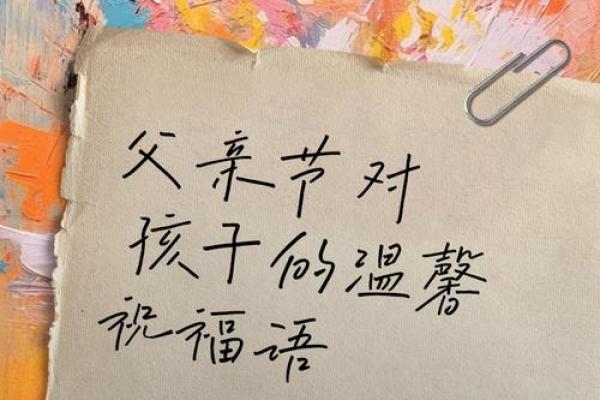 父亲节对
孩子的温馨
祝福语